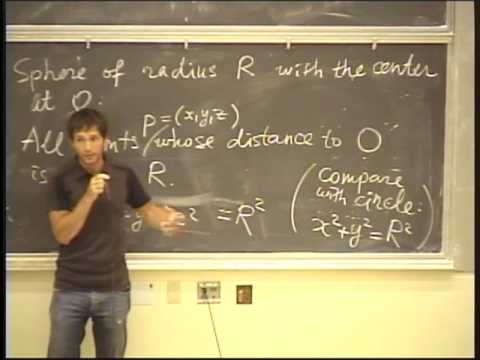 Sphere of radius R with the center
at O.
All P = (x, y, z) whose distance to O
is R.
= R²
(compare
with circle:
x² + y² = R²)